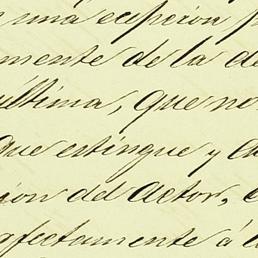 una ecepcion
mente de la de
última, que no
que estingue y
ion del actor,
rfectamente á